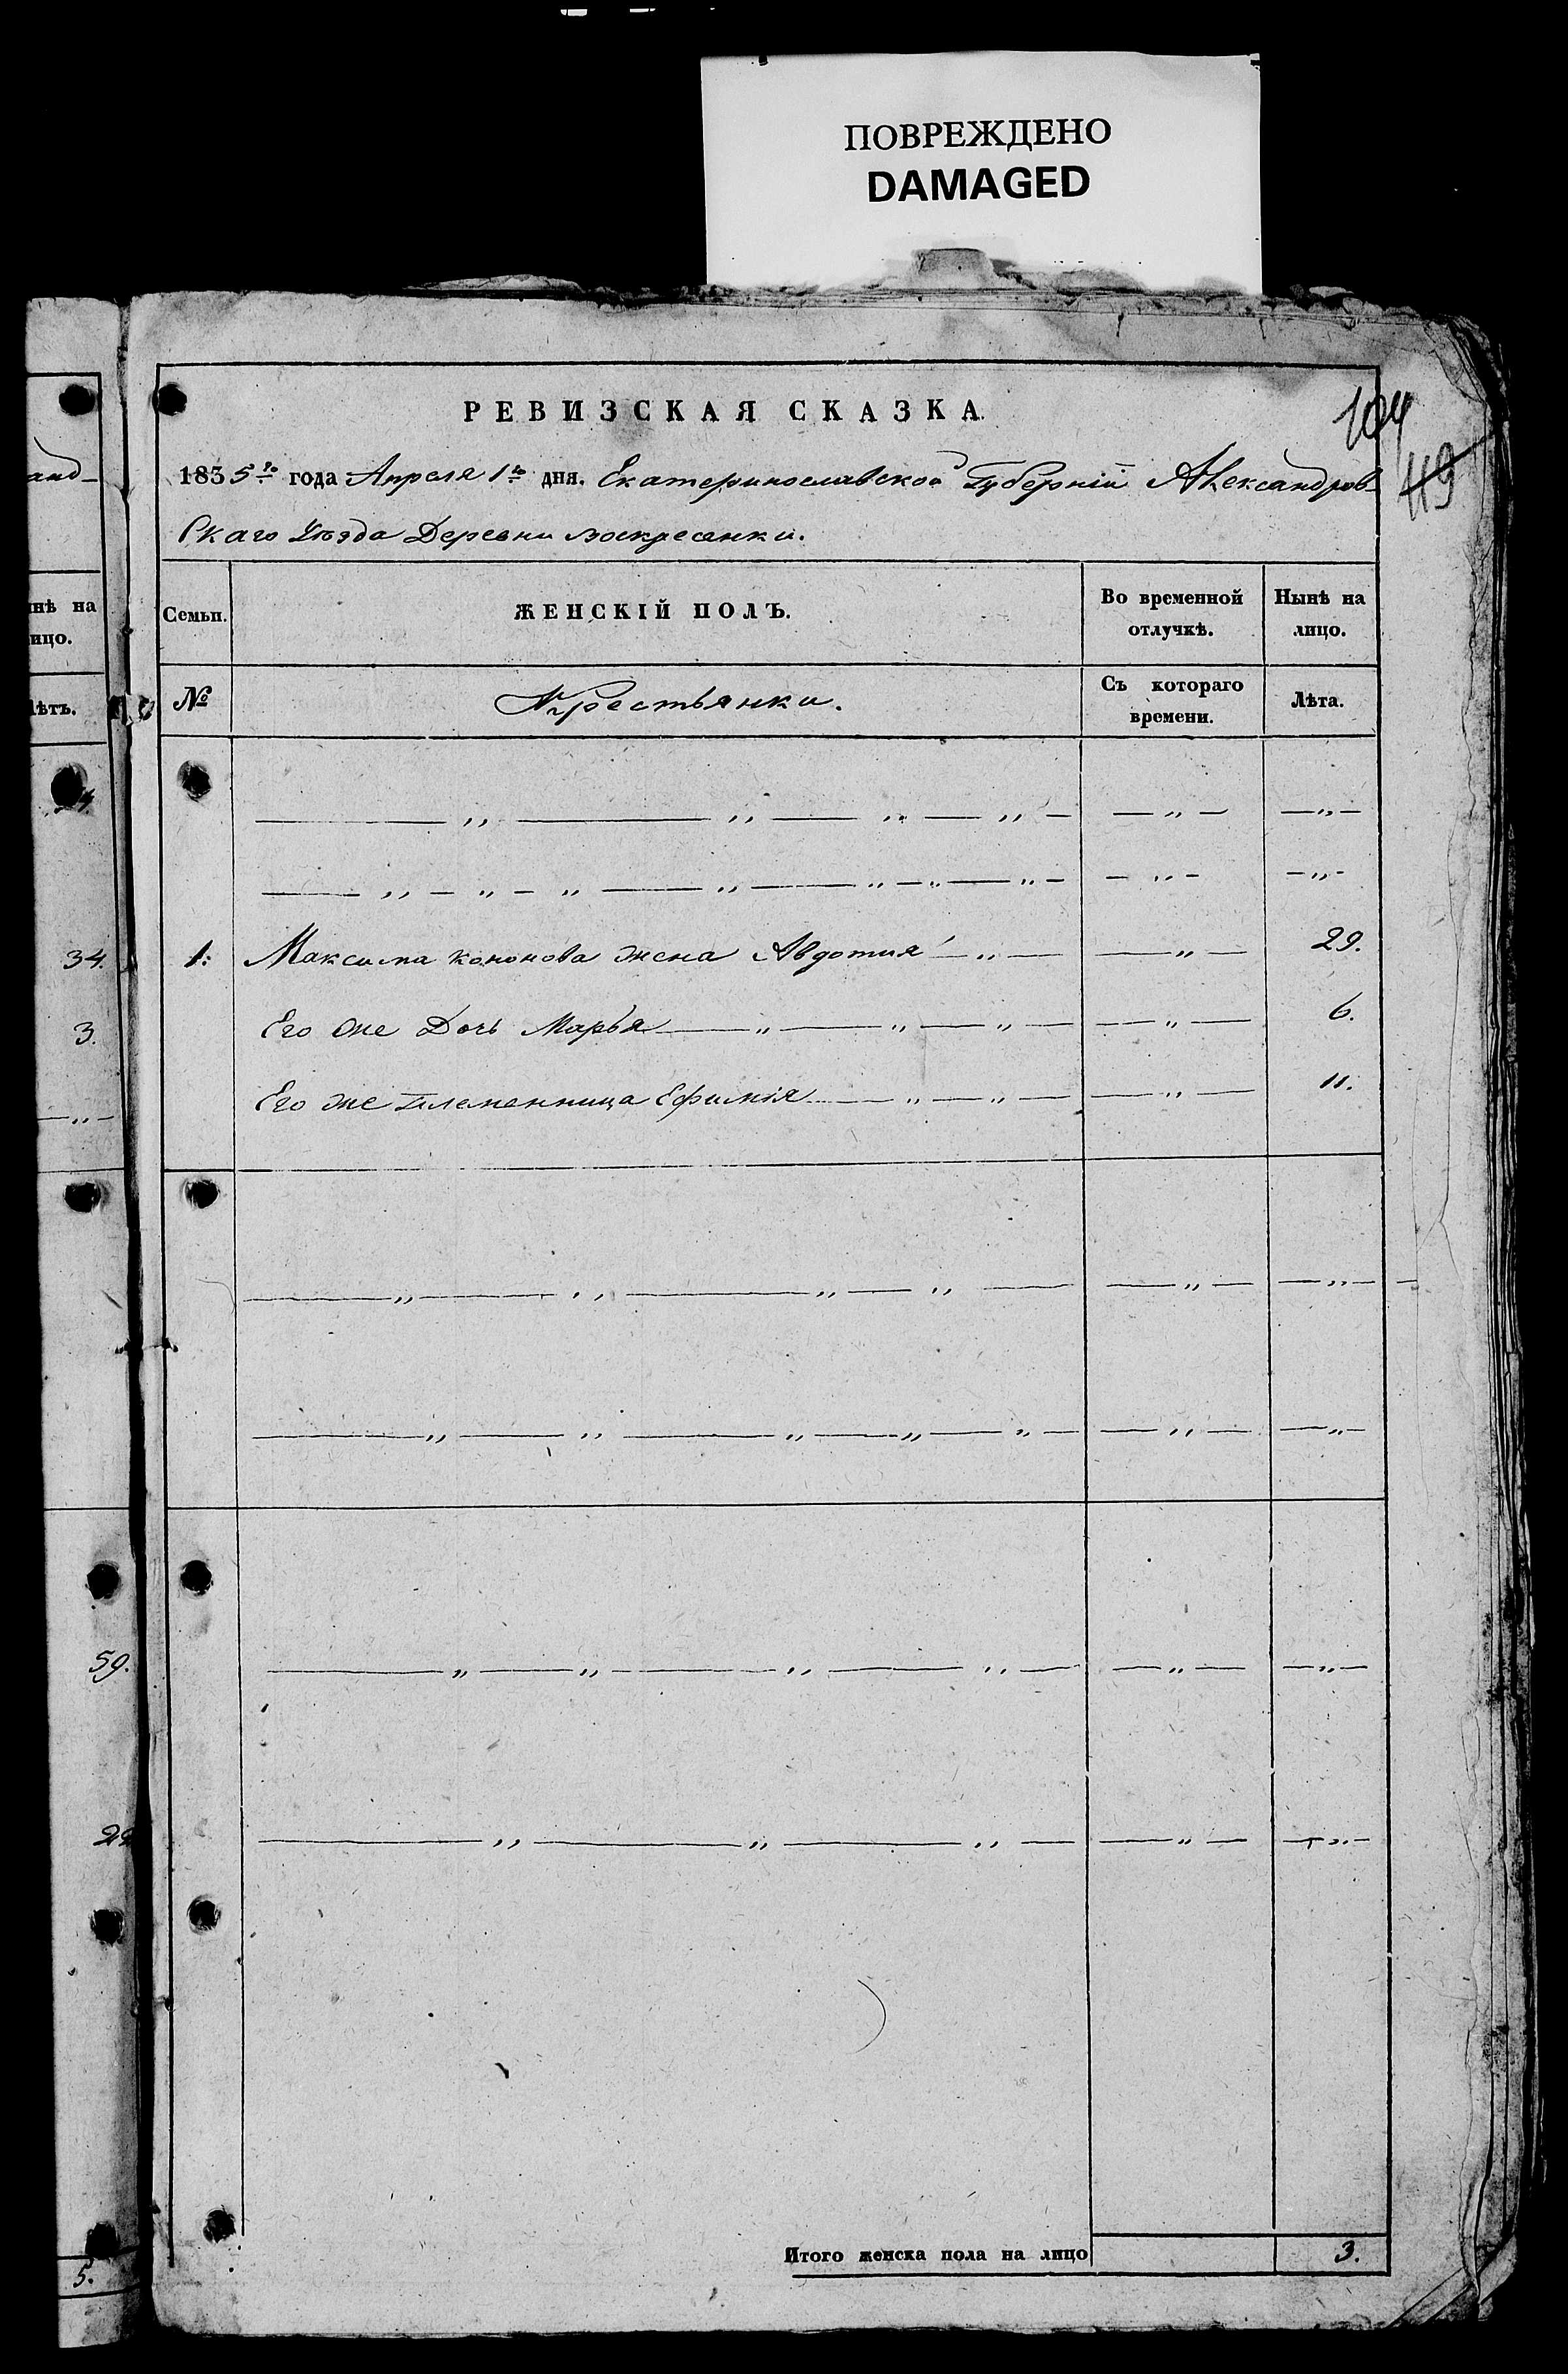 ПОВРЕЖДЕНО
DAMAGED
РЕВИЗСКАЯ СКАЗКА.
104
119
1835го года Апреля 1го дня. Екатеринославской Губерніи Александров-
скаго Уѣзда Деревни воскресенки.
Семьи. ЖЕНСКІЙ ПОЛЪ. Во временной отлучкѣ. Нынѣ на лицо.
№ Крестьянки. Съ котораго времени. Лѣта.
— „ — „ — „ — „ — — „ — — „ —
— „ — „ — „ — „ — „ — „ — „ — — „ — — „ —
1: Максима кононова жена Авдотия — „ — — „ — 29.
Его же Дочь Марья — „ — „ — „ — — „ — 6.
Его же племенница Ефимія — „ — „ — — „ — 11.
— „ — „ — „ — „ — — „ — — „ —
— „ — „ — „ — „ — „ — — „ — — „ —
— „ — „ — „ — „ — — „ — — „ —
— „ — „ — „ — — „ — — „ —
Итого женска пола на лицо 3.
анд-
нѣ на
ицо.
лѣтъ.
34.
3.
— „ —
59.
5.